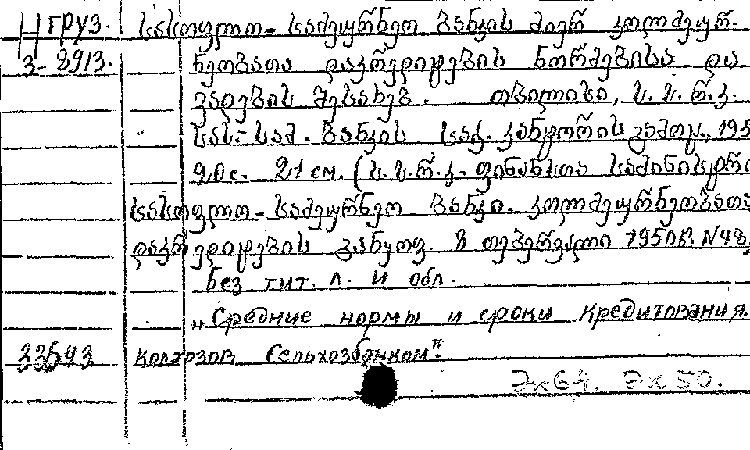 II груз. სასოფლო-სამეურნეო ბანკის მიერ კოლმეურ-
3-8913. ნეობათა დაკრედიტების ნორმებისა და
ვადების შესახებ. თბილისი, ს.ს.რ.კ.
სას.-სამ. ბანკის საქ. კანტორის გამოც., 195
21 см. (ს.ს.რ.კ. ფინანსთა სამინისტრო
სასოფლო-სამეურნეო ბანკი. კოლმეურნეობათა
დაკრედიტების განყოფ. 8 თებერვალი 1950წ. N48,
без тит. л. и обл.
„Средние нормы и сроки кредитования
33593 колхозов Сельхозбанком".
Эк64. Эк50.